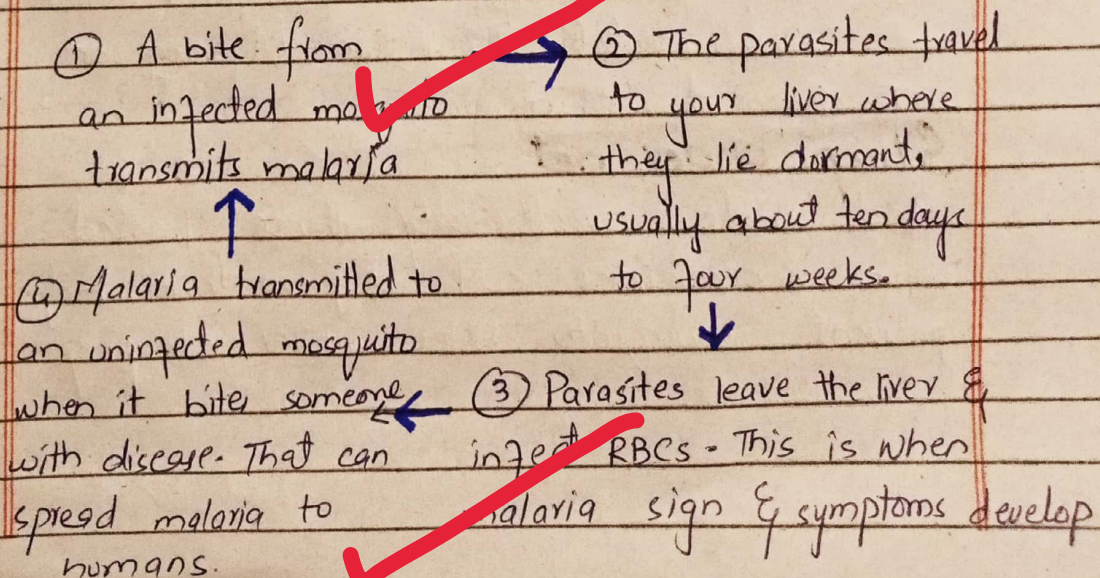 ① A bite from
an infected mosquito
transmits malaria
② The parasites travel
to your liver where
they lie dormant,
usually about ten days
to four weeks.
③ Parasites leave the liver &
infect RBCs. This is when
malaria sign & symptoms develop
④ Malaria transmitted to
an uninfected mosquito
when it bites someone
with disease. That can
spread malaria to
humans.